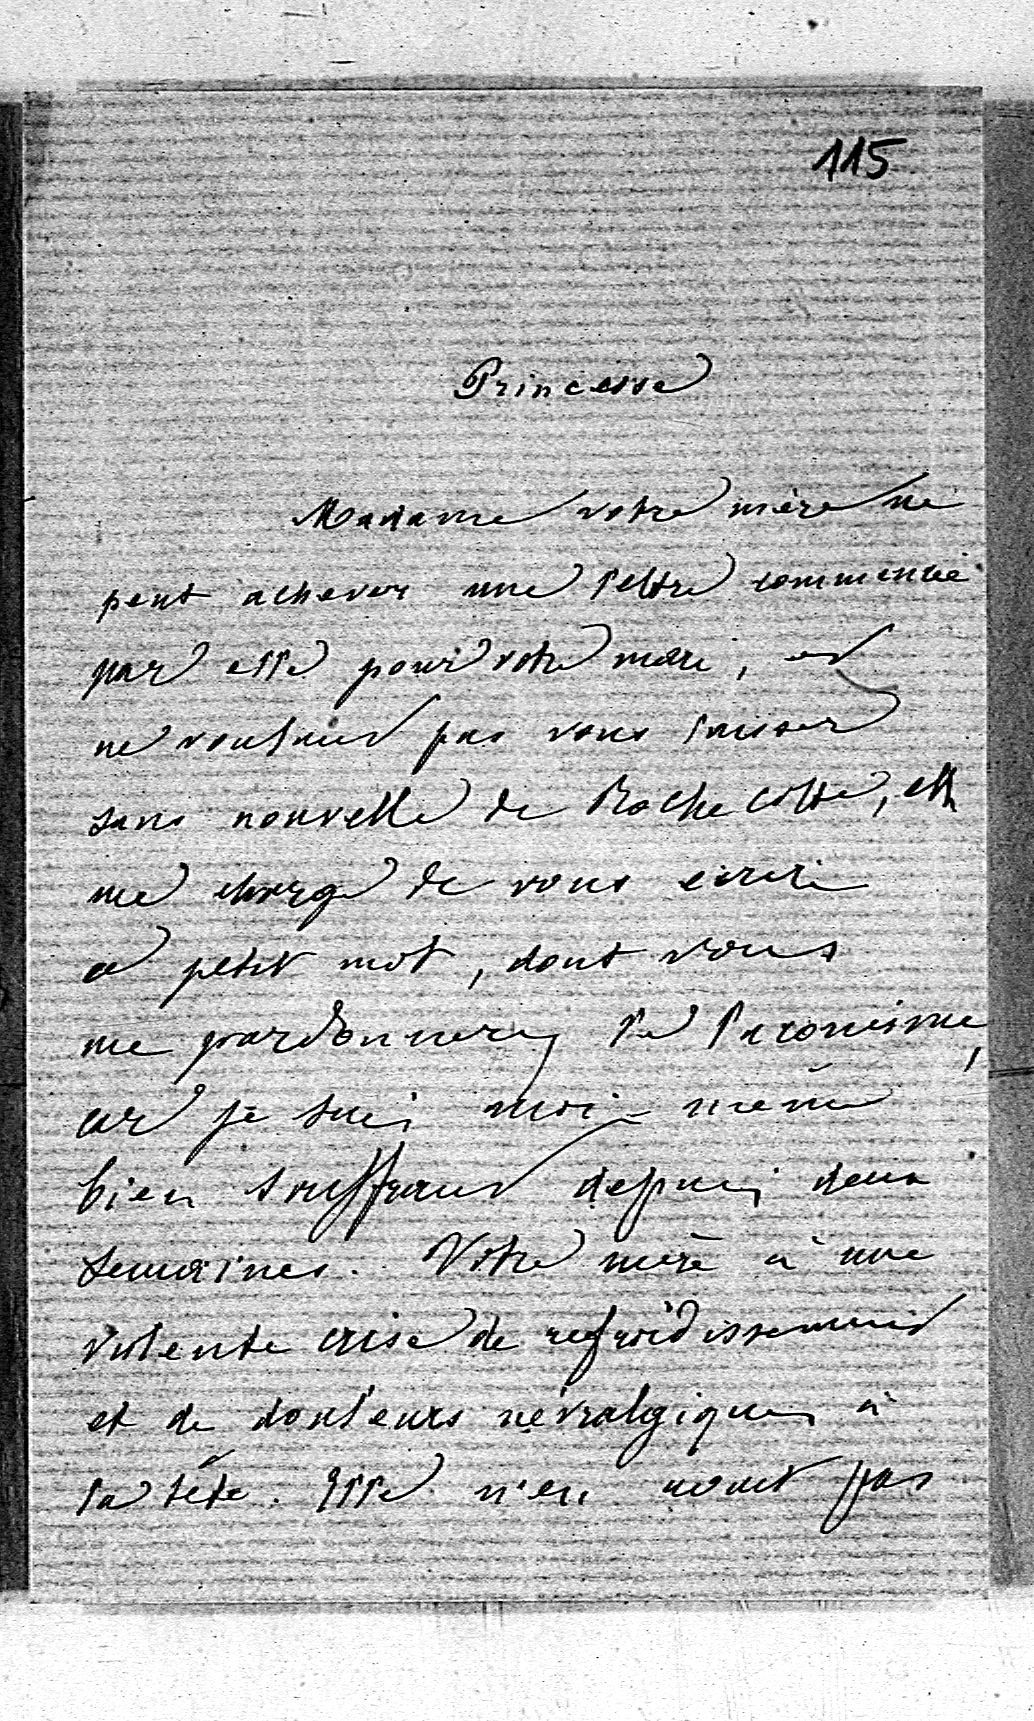 115
Princesse
Madame votre mère ne
peut achever une lettre commencée
par elle pour votre mari, et
ne voulant pas vous laisser
sans nouvelle de Rochecotte, elle
me charge de vous écrire
ce petit mot, dont vous
me pardonnerez le laconisme,
car je suis moi-même
bien souffrant depuis deux
semaines. Votre mère a une
violente crise de refroidissement
et de douleurs névralgiques à
la tête. Elle n'en avait pas